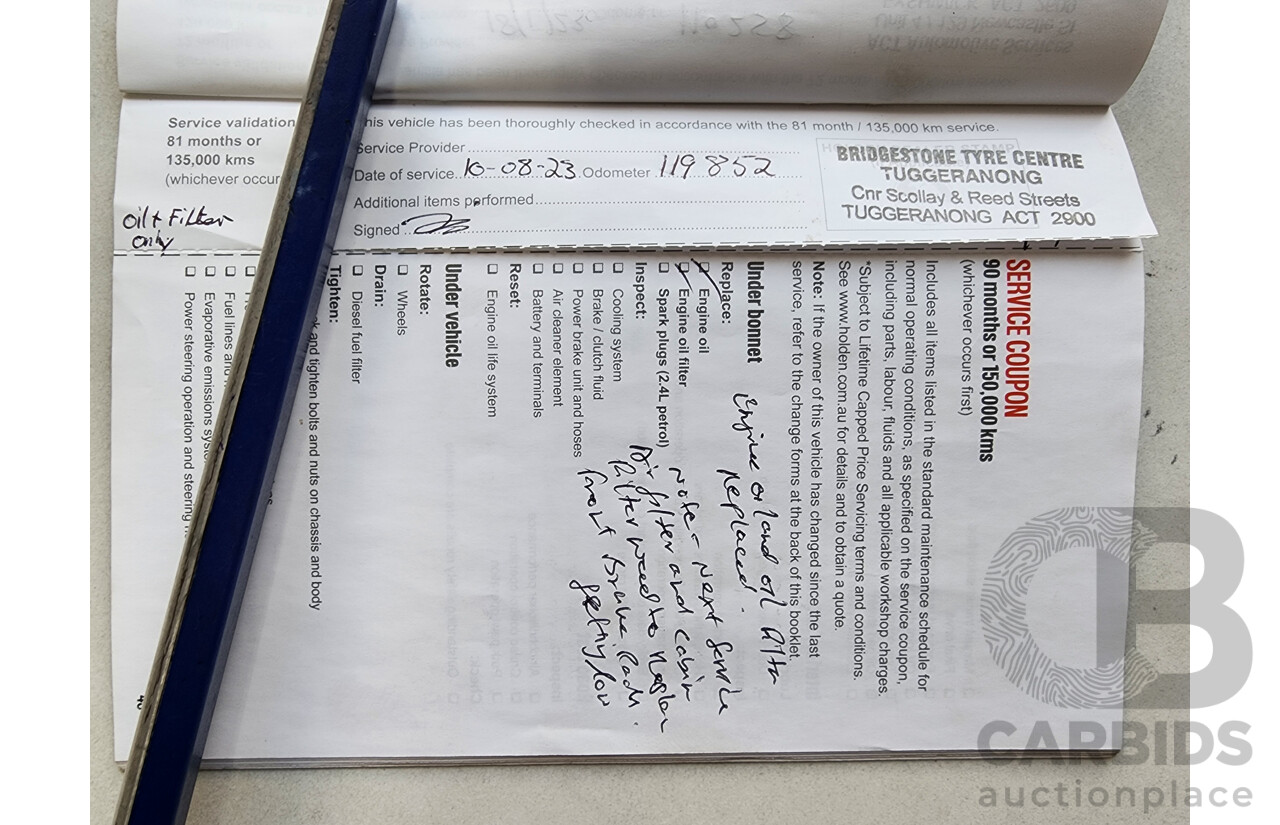 18/1/23
110258
Unit 4 / 120 Newcastle St
ACT Automotive Services
Service validation
81 months or
135,000 kms
(whichever occur
Oil + Filter
Only
his vehicle has been thoroughly checked in accordance with the 81 month / 135,000 km service.
Service Provider
Date of service 10-08-23 Odometer 119852
Additional items performed
Signed
BRIDGESTONE TYRE CENTRE
TUGGERANONG
Cnr Scollay & Reed Streets
TUGGERANONG ACT 2900
SERVICE COUPON
90 months or 150,000 kms
(whichever occurs first)
Includes all items listed in the standard maintenance schedule for
normal operating conditions, as specified on the service coupon,
including parts, labour, fluids and all applicable workshop charges.
*Subject to Lifetime Capped Price Servicing terms and conditions.
See www.holden.com.au for details and to obtain a quote.
Note: If the owner of this vehicle has changed since the last
service, refer to the change forms at the back of this booklet.
Under bonnet
Replace:
Engine oil
Engine oil filter
Spark plugs (2.4L petrol)
Inspect:
Cooling system
Brake / clutch fluid
Power brake unit and hoses
Air cleaner element
Battery and terminals
Reset:
Engine oil life system
Under vehicle
Rotate:
Wheels
Drain:
Diesel fuel filter
Tighten:
and tighten bolts and nuts on chassis and body
Fuel lines and
Evaporative emissions syst
Power steering operation and steering
Engine oil and oil filter
replaced.
Note - Next Service
Air filter and cabin
filter need to replace
front brake pads
getting low
CARBIDS
auctionplace